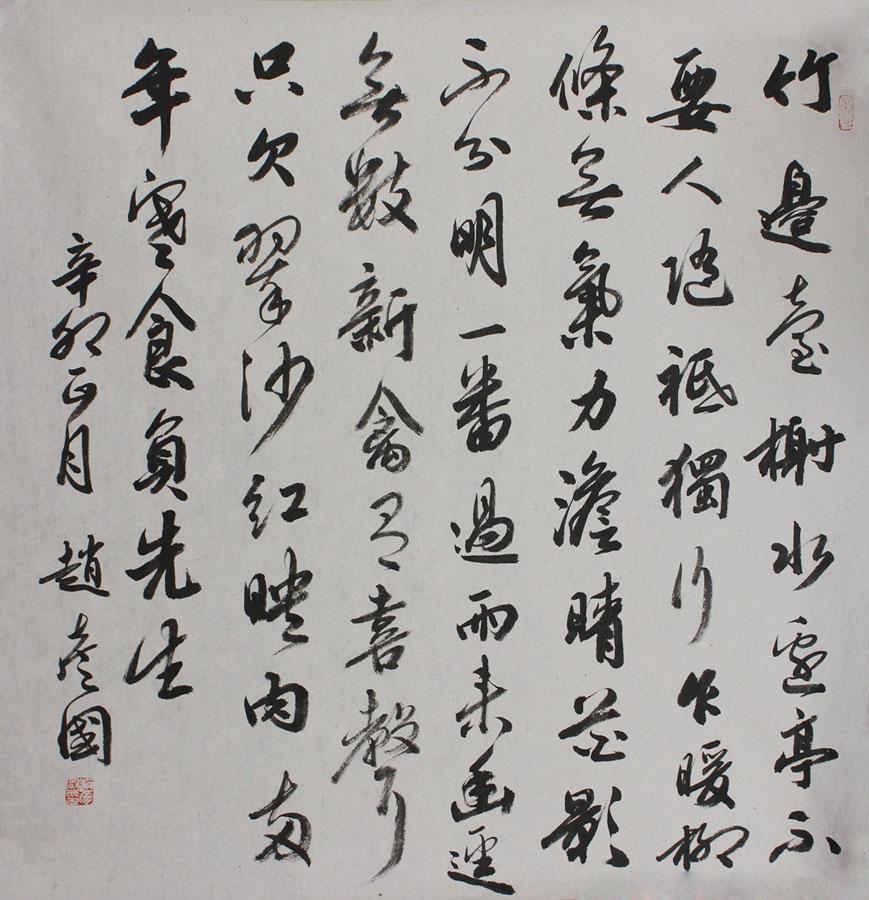 竹邊臺榭水邊亭不
要人隨祗獨行乍暖柳
條無氣力澹晴花影
不分明一番過雨來幽逕
無數新禽有喜聲
只欠翠沙紅映肉兩
年寒食負先生
辛卯正月 趙彥國